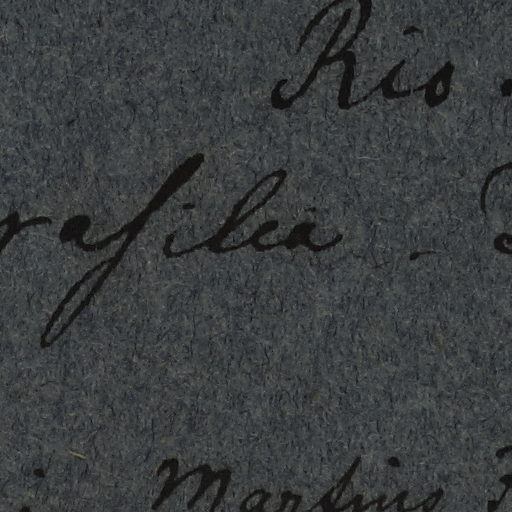 Rio
rasilea
Martins